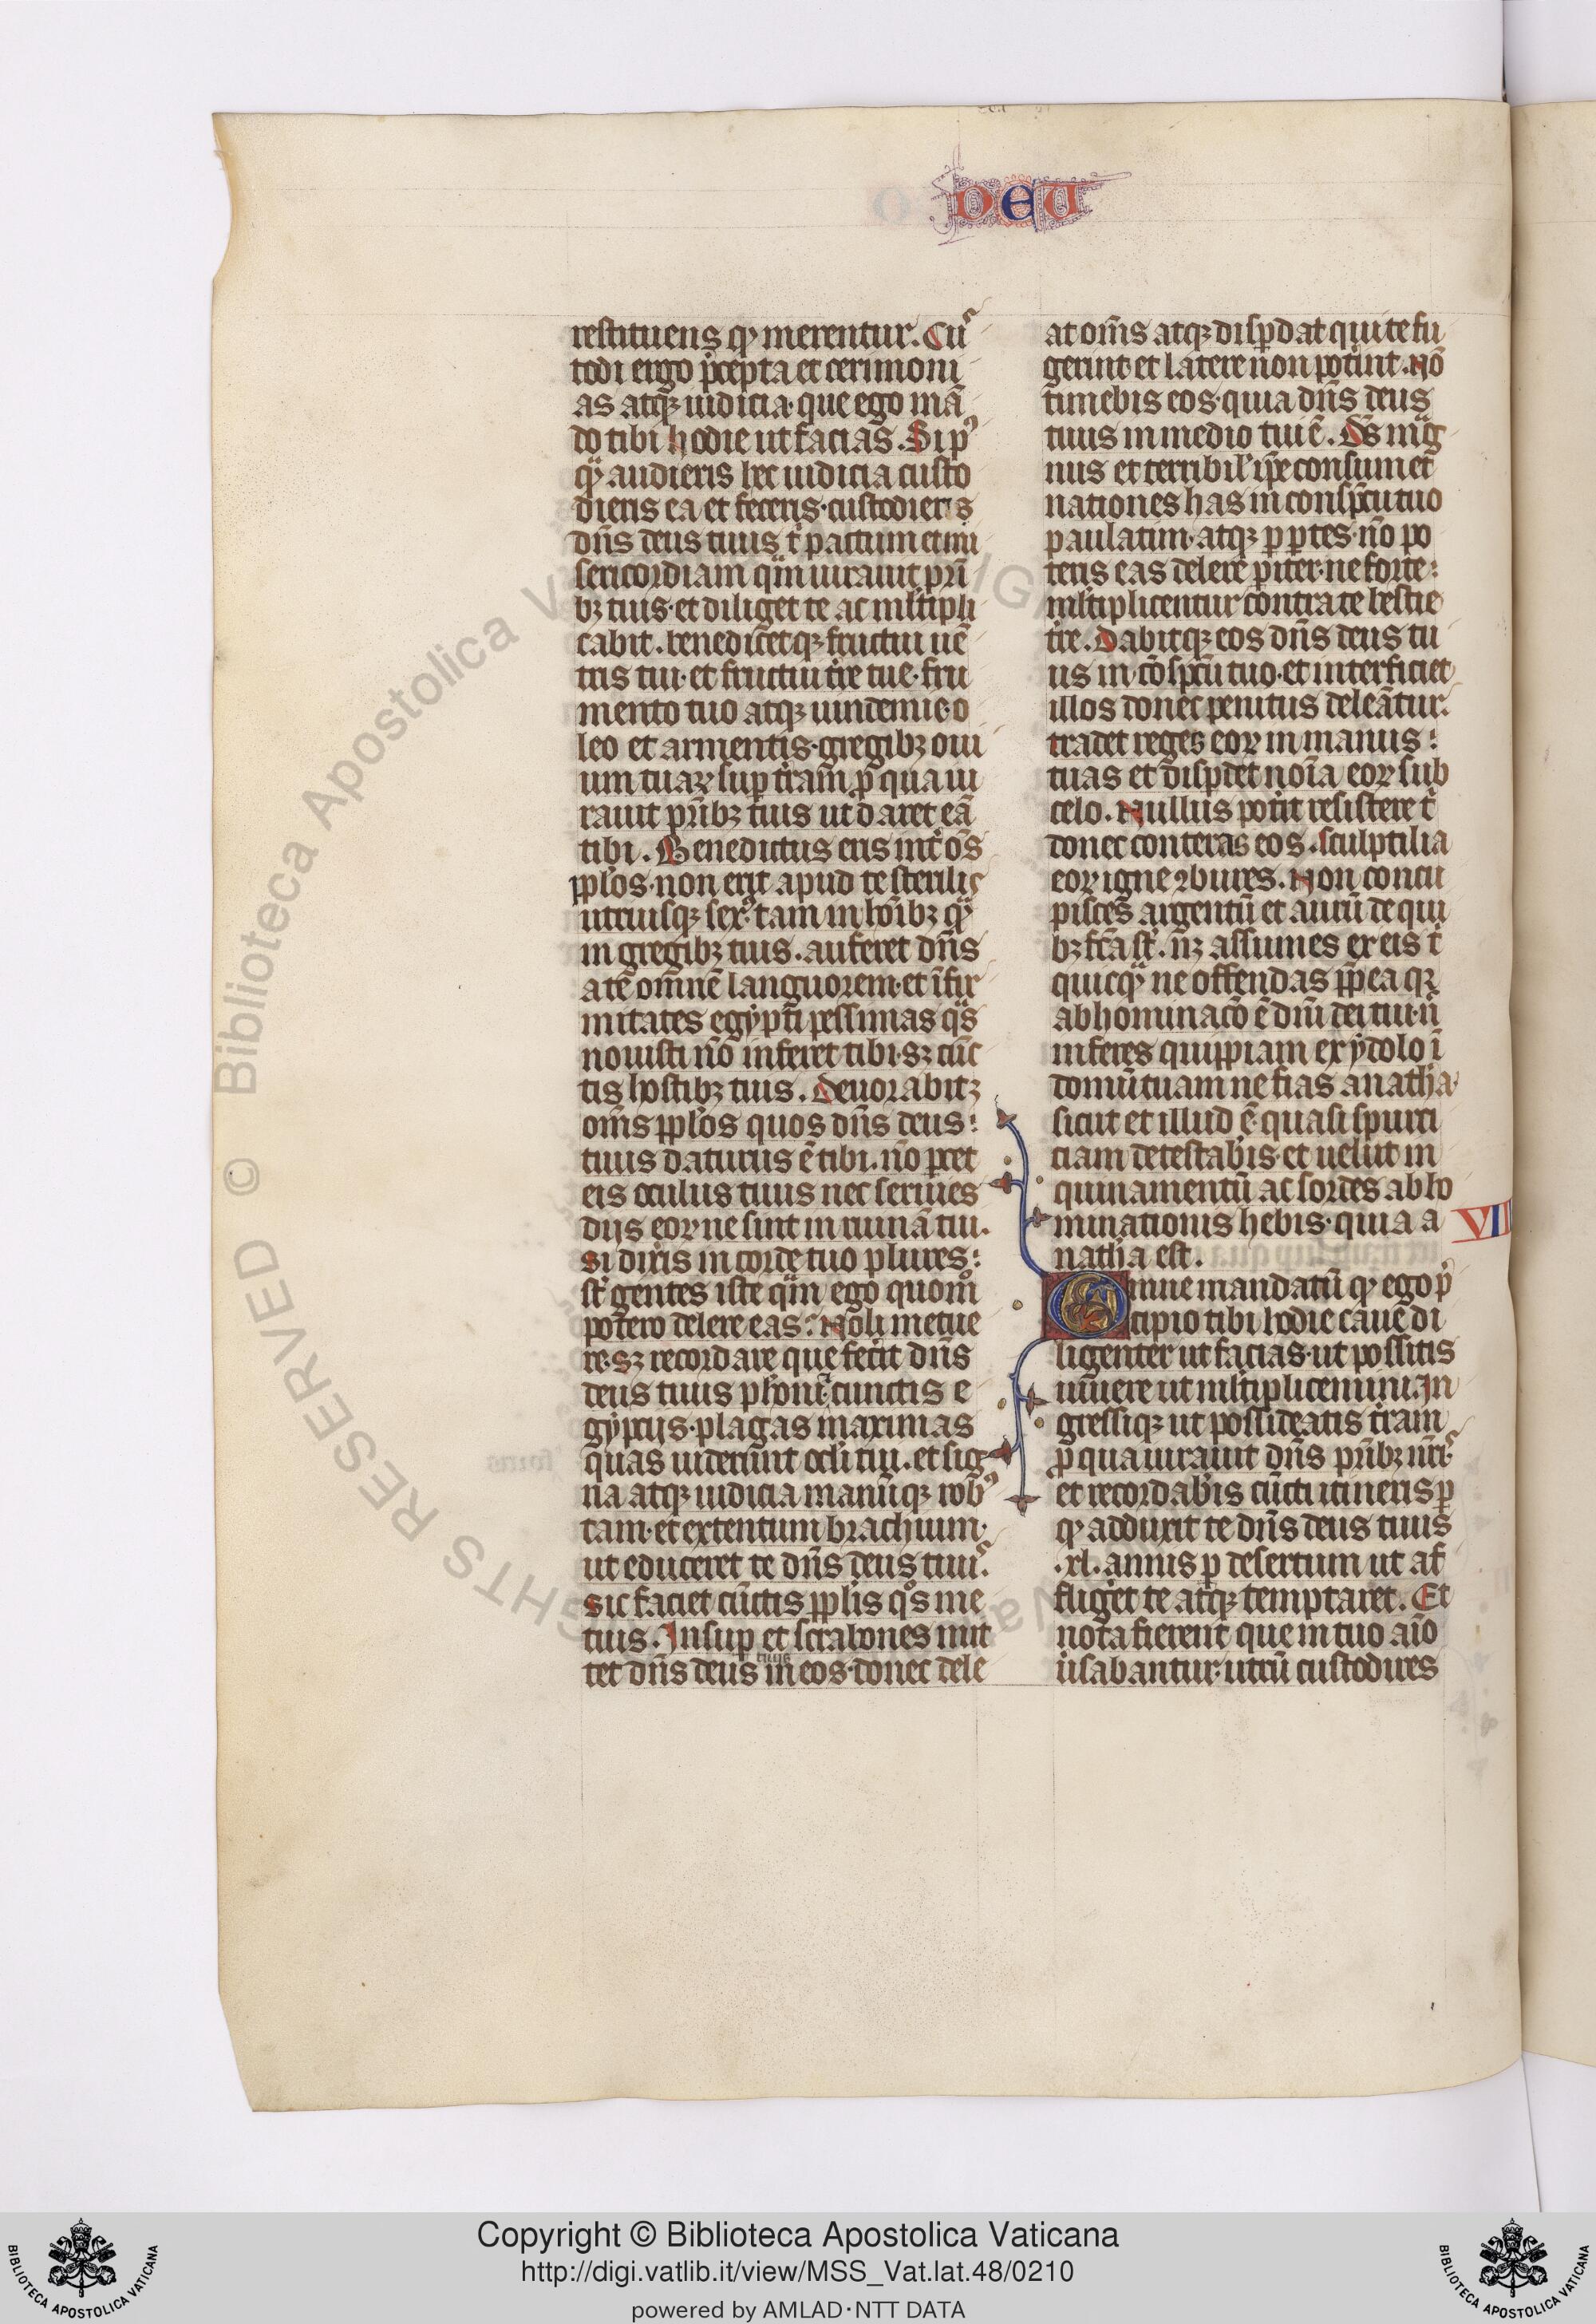 DEU
restituens qͥ merentur. Cuſ
todi ergo p̄cepta et cerimoni
as atqꝫ iudicia que ego mā
do tibi hodie ut facias. Si pꝰ
qͣ audieris hec iudicia custo
diens ea et feceris custodiet
dn̄s deus tuus t̄ pactum et mi
sericordiam qͣm iurauit pr̄i
bꝫ tuis et diliget te ac ml̄tipli
cabit. benedicetqꝫ fructui uē
tris tui et fructui tr̄e tue fru
mento tuo atqꝫ uindemie o
leo et armentis gregibꝫ oui
um tuaꝝ suꝑ tr̄am ꝓ qua iu
rauit pr̄ibꝫ tuis ut daret eā
tibi. Benedictus eris int̄ oēs
pp̄los non erit apud te sterilis
utriusqꝫ sexꝰ tam in hoīibꝫ qͣ
in gregibꝫ tuis. auferet dn̄s
a te om̄nē languorem et īfir
mitates egypti pessimas qͣs
nouisti nō inferet tibi sꝫ cūc
tis hostibꝫ tuis. Deuorabitqꝫ
om̄s pp̄los quos dn̄s deus
tuus daturus ē tibi. nō ꝑcet
eis oculus tuus nec seruies
diis eoꝝ ne sint in ruinā tui.
Si dixͥis in corde tuo plures
st̄ gentes iste qͣm ego quomͦ
potero delere eas? Noli metue
re sꝫ recordare que fecit dn̄s
deus tuus pharoni et cunctis e
gyptiis plagas maximas
quas uiderunt ocl̄i tui. et sig
na atqꝫ iudicia manūqꝫ robꝰ
tam et extentum brachium
ut educeret te dn̄s deus tuuſ.
Sic faciet cūctis pp̄lis qͦs me
tuis. Insuꝑ et scrabones mit
tet dn̄s deus tuus in eos donec dele
at om̄is atqꝫ disꝑdat qui te fu
gerint et latere non potͥint. Nō
timebis eos quia dn̄s deus
tuus in medio tui ē. Ds̄ mͣg
nus et terribil̄ ip̄e consumet
nationes has in conspc̄u tuo
paulatim atqꝫ ꝑ ꝑtes nō po
teris eas delere ꝑiter ne forte
ml̄tiplicentur contra te bestie
tr̄e. Dabitqꝫ eos dn̄s deus tu
us in cōspc̄u tuo et interficiet
illos donec penitus deleātur.
tradet reges eoꝝ in manus
tuas et disꝑdet noīa eoꝝ sub
celo. Nullus potͥit resistere t̄
donec conteras eos. Sculptilia
eoꝝ igne ꝯbures. Non concu
pisces argentū et aurū de qui
bꝫ fc̄a st̄. nꝫ assumes ex eis t̄
quicqͣ ne offendas pp̄ ea qꝫ
abhominac̄o ē dn̄i dei tui n̄
inferes quippiam ex ydolo ī
domū tuam ne fias anath̄a
sicut et illud ē quasi spurci
ciam detestab̄is et uelut in
quinamentū ac sordes abho
minationis heb̄is quia a
nath̄a est.
VII
Omne mandatū qͥ ego p̄
cipio tibi hodie caue di
ligenter ut facias ut possitis
uiuere ut ml̄tiplicemini. In
gressiqꝫ ut possideatis tr̄am
ꝓ qua iurauit dn̄s pr̄ibꝫ ur̄iſ
et recordab̄is cūcti itineris ꝑ
qͥ adduxit te dn̄s deus tuus
.xl. annis ꝑ desertum ut af
fliget te atqꝫ temptaret. Et
nota fierent que in tuo aīo
ūsabantur utrū custodires
Copyright © Biblioteca Apostolica Vaticana
http://digi.vatlib.it/view/MSS_Vat.lat.48/0210
powered by AMLAD·NTT DATA
BIBLIOTECA APOSTOLICA VATICANA
BIBLIOTECA APOSTOLICA VATICANA